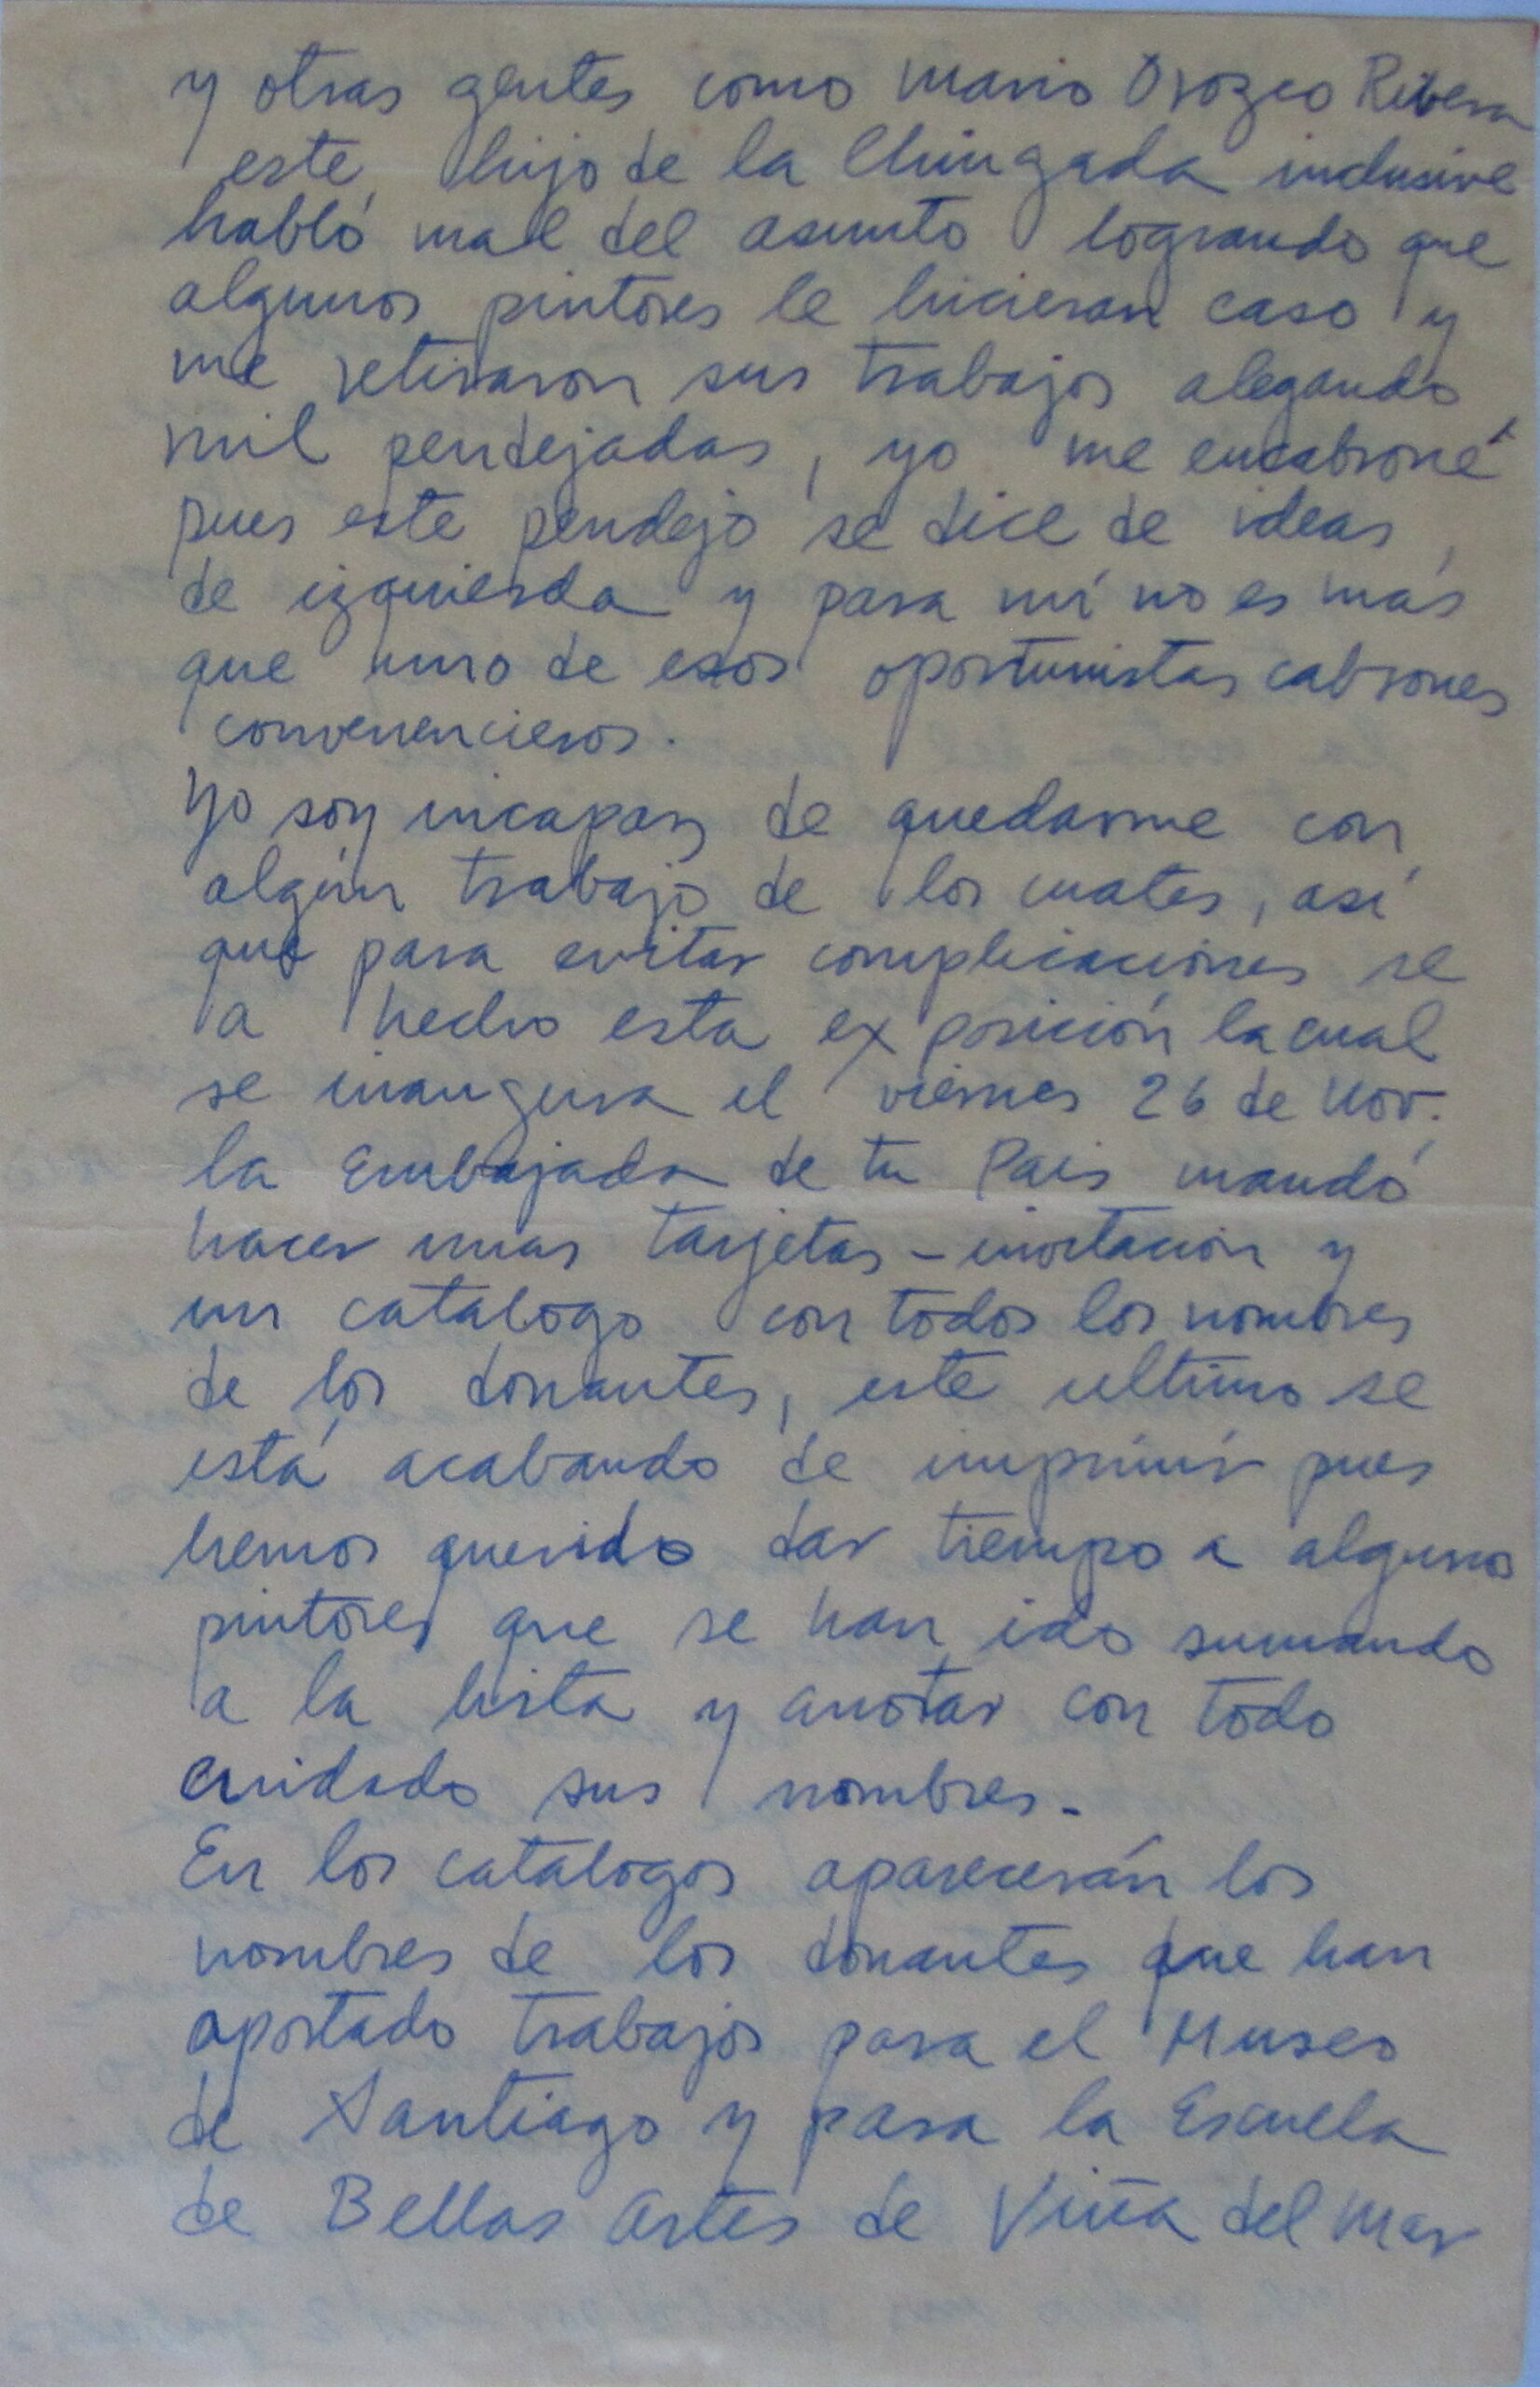 y otras gentes como Mario Orozco Rivera
este hijo de la Chingada inclusive
habló mal del asunto logrando que
algunos pintores le hicieran caso y
me retiraron sus trabajos alegando
mil pendejadas, yo me encabroné
pues este pendejo se dice de ideas
de izquierda y para mí no es más
que uno de esos oportunistas cabrones
convenencieros.
Yo soy incapaz de quedarme con
algún trabajo de los cuates, así
que para evitar complicaciones se
a hecho esta exposición la cual
se inaugura el viernes 26 de Nov.
la Embajada de tu Pais mandó
hacer unas tarjetas - invitación y
un catalogo con todos los nombres
de los donantes, este ultimo se
está acabando de imprimir pues
hemos querido dar tiempo a alguno
pintores que se han ido sumando
a la lista y anotar con todo
cuidado sus nombres.
En los catalogos aparecerán los
nombres de los donantes que han
aportado trabajos para el Museo
de Santiago y para la Escuela
de Bellas Artes de Viña del Mar